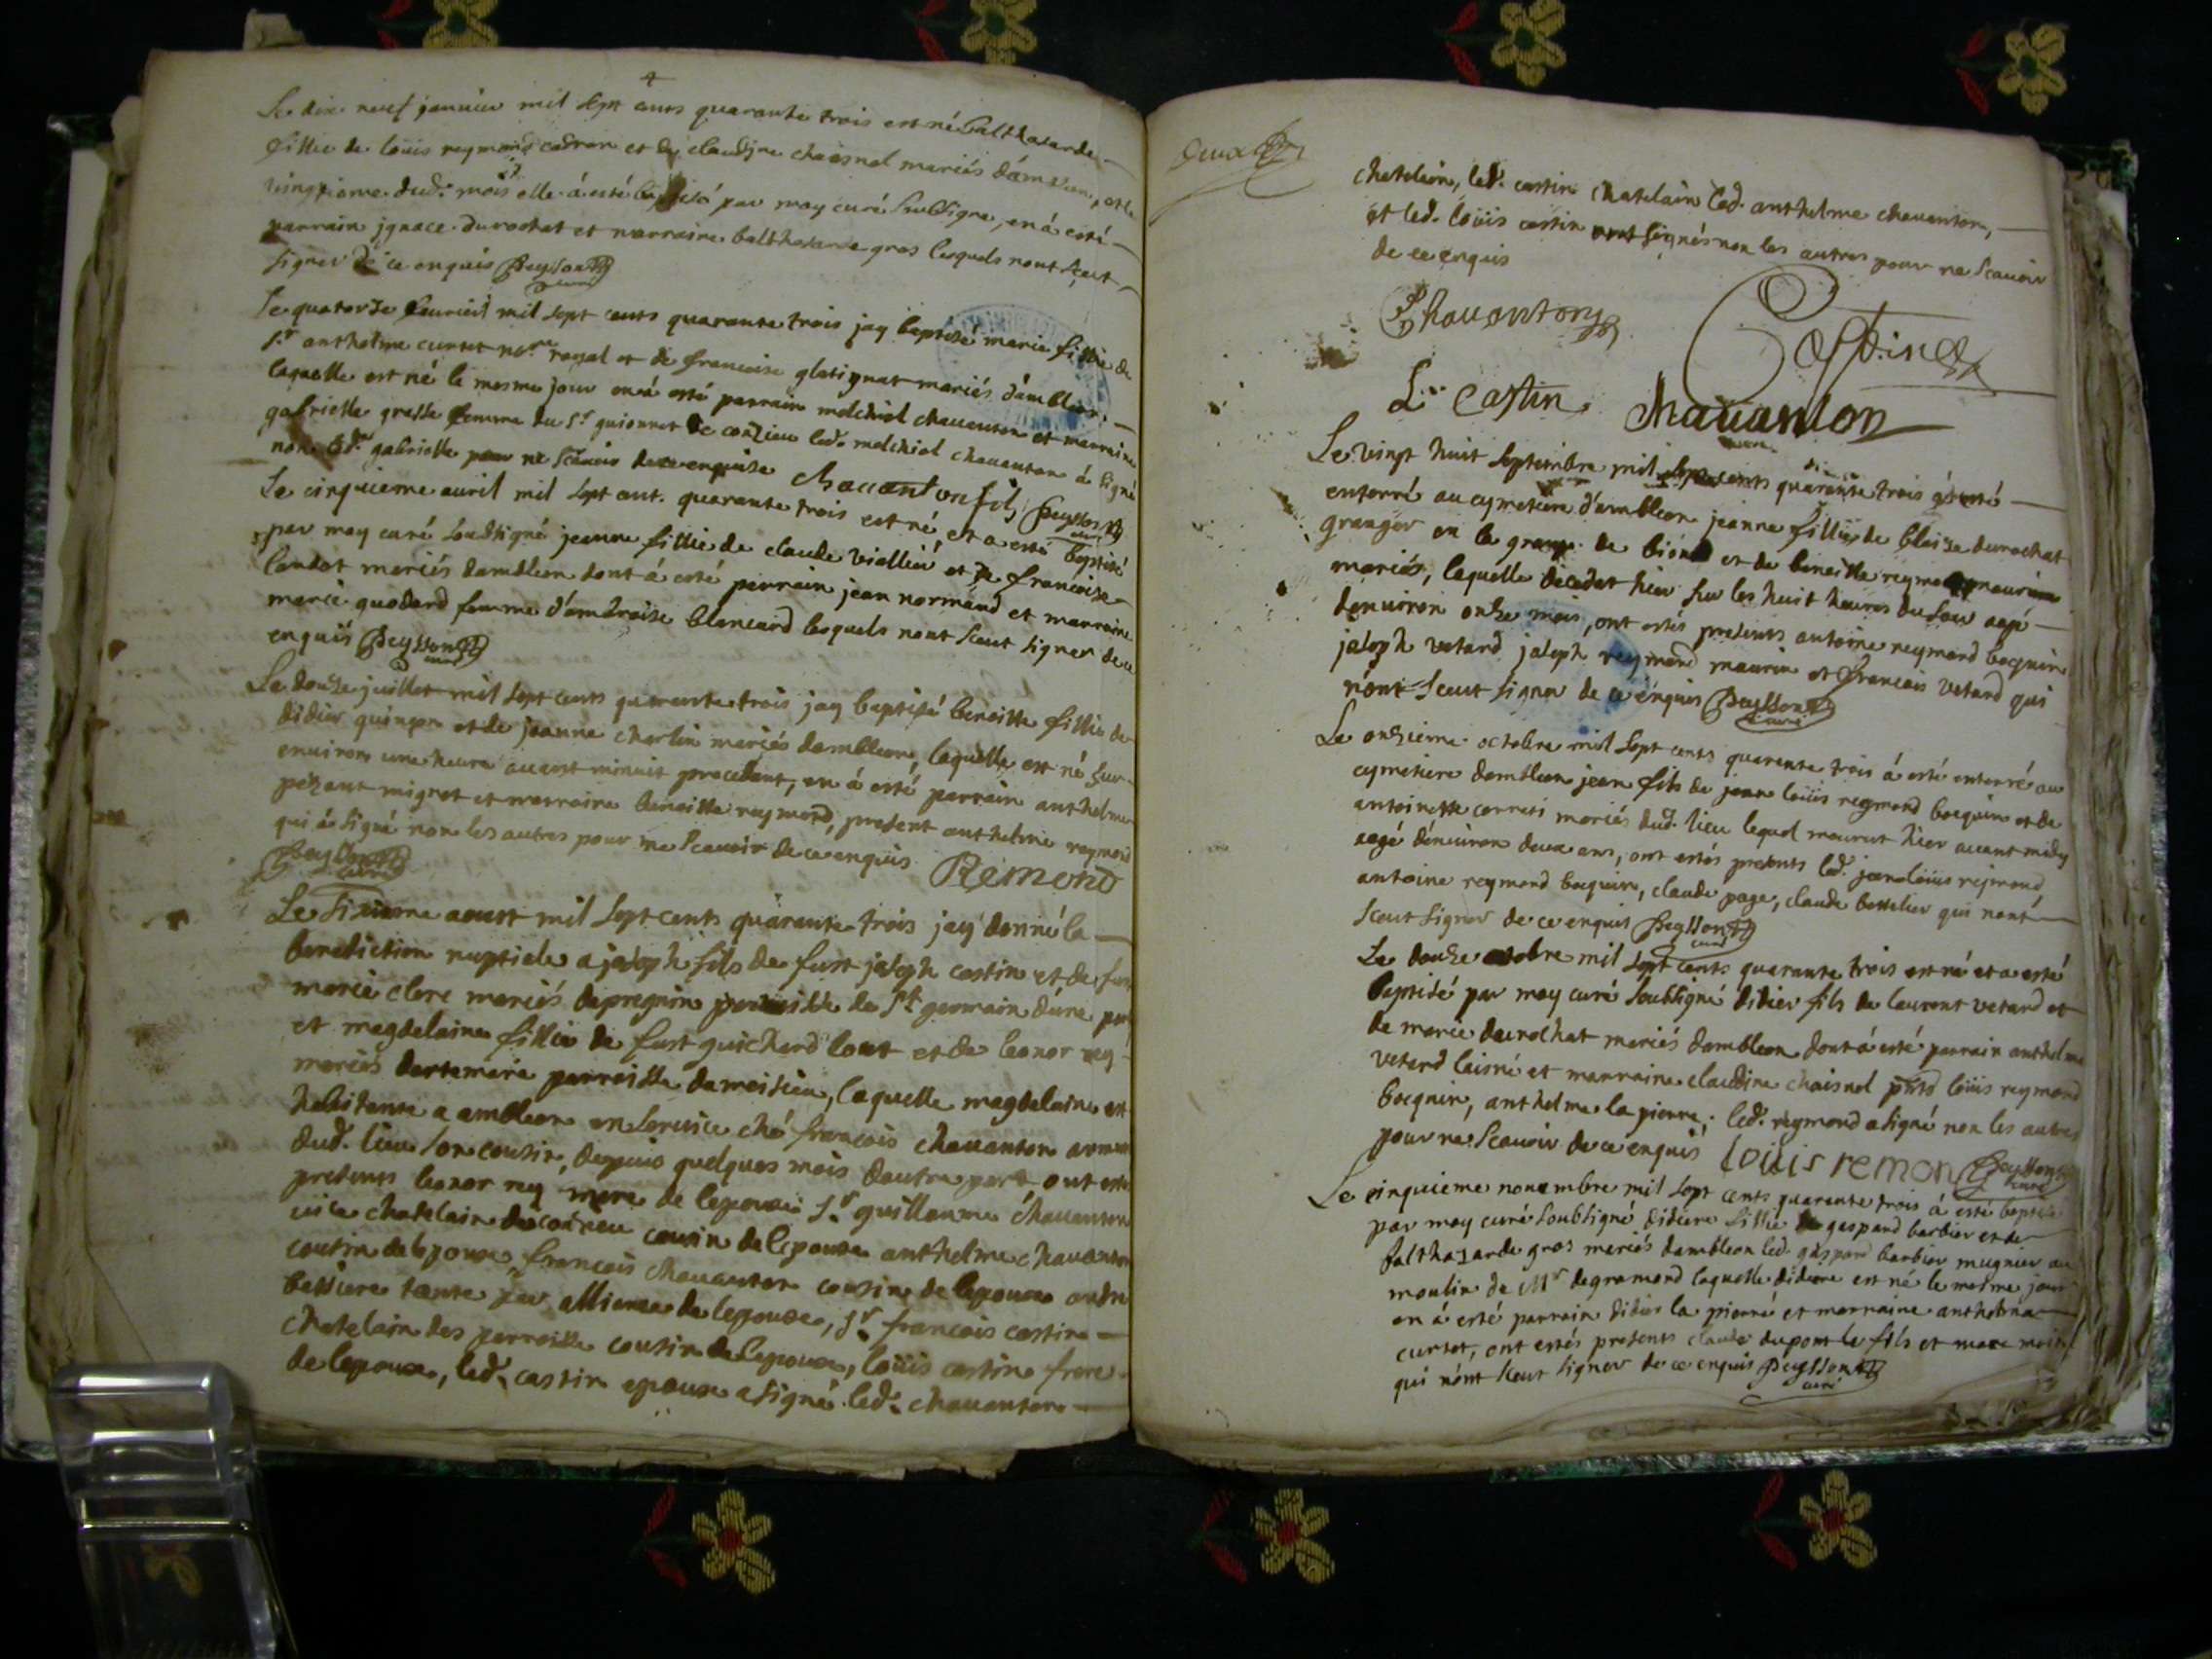 4
Le dix neuf janvier mil sept cents quarante trois est né balthazarde
fillie de loüis reymond cadran et de claudine chaisnel mariés d'ambleon, et le
vingtieme dud. mois elle á esté baptisé par moy curé soubsigné, en á esté
parrain jgnace durochat et marraine balthazarde gros lesquels nont sceut
signer de ce enquis Peysson curé
Le quatorze feurier mil sept cents quarante trois jay baptisé marie fillie de
sr. anthelme curtet nore. royal et de francoise glatignat mariés d'ambleon
laquelle est né le mesme jour en á esté parrain melchiol chauanton et marraine
gabrielle grasse femme du sr. guionnet de conzieu led. melchiol chauanton á signé
non lad. gabrielle pour ne scauoir de ce enquise Chauanton fils Peysson curé
Le cinquieme auril mil sept cent. quarante trois est né et a esté baptisé
par moy curé soubsigné jeanne fillie de claude viallié et de francoise
landot mariés dambleon dont á esté parrain jean normand et marraine
marie quodard femme d'ambroise blancard lesquels nont sceut signer de ce
enquis Peysson curé
Le douze juillet mil sept cents quarante trois jay baptisé benoitte fillie de
didier quinson et de jeanne charlin mariés dambleon, laquelle est né sur
enuiron une heure auant minuit precedent, en á esté parrain anthelme
pezant mignot et marraine benoitte reymond, present anthelme reymond
qui á signé non les autres pour ne scauoir de ce enquis Rémond
Peysson curé
Le sixieme aoust mil sept cents quarante trois jay donné la
benediction nuptiale a joseph fils de fust joseph castin et de fust
marie clerc mariés de pregnin parroisse de st. germain d'une part
et magdelaine fillie de fust guichard lout et de leonor rey
mariés dartemare parroisse dameisieu, laquelle magdelaine est
habitante a ambleon en seruice ché francois chauanton
dud. lieu son cousin, depuis quelques mois dautre part ont estés
presents leonor rey mere de lepouse sr. guillaume chauanton
chatelain cousin de lepouse anthelme chauanton
cousin de lepouse, francois chauanton cousin de lepouse
bessiere tante par alliance de lepouse, sr. francois castin
chatelain des parroisse cousin de lepoux, loüis castin frere
de lepoux, led. castin epoux a signé led. chauanton
chatelain, led. castin chatelain led. anthelme chauanton,
et led. loüis castin ont signés non les autres pour ne scauoir
de ce enquis
Chauanton
Castin
L. Castin Chauanton
Le vingt huit septembre mil sept cents quarante trois á esté
enterré au cymetiere d'ambleon jeanne fillie de blaise durochat
granger en la grange de et de benoitte reymond maurin
mariés, laquelle décedat hier sur les huit heures du soir agé
denuiron onze mois, ont estés presents antoine reymond bocquin
joseph vetard joseph reymond maurin et francois vetard qui
nont sceut signer de ce enquis Peysson curé
Le onzieme octobre mil sept cents quarante trois á esté enterré au
cymetiere dambleon jean fils de jean loüis reymond bocquin et de
antoinette carreti mariés dud. lieu lequel mourut hier auant midy
aagé dénuiron deux ans, ont estés presents led. jean loüis reymond
antoine reymond bocquin, claude page, claude bottelier qui nont
sceut signer de ce enquis Peysson curé
Le douze octobre mil sept cents quarante trois est né et a esté
baptisé par moy curé soubsigné didier fils de laurent vetard et
de marie durochat mariés dambleon dont á esté parrain anthelme
vetard laisné et marraine claudine chaisnel pnts loüis reymond
bocquin, anthelme la pierre. led. reymond a signé non les autres
pour ne scauoir de ce enquis loüis remon Peysson curé
Le cinquieme nouembre mil sept cents quarante trois á esté baptisé
par moy curé soubsigné didiere fillie de gaspard barbier et de
balthazarde gros mariés dambleon led. gaspard barbier mugnier au
moulin de Mr degramond laquelle didiere est né le mesme jour
en á esté parrain didier la pierre et marraine anthelma
curtet, ont estés presents claude dupont le fils et
qui nont sceut signer de ce enquis Peysson curé